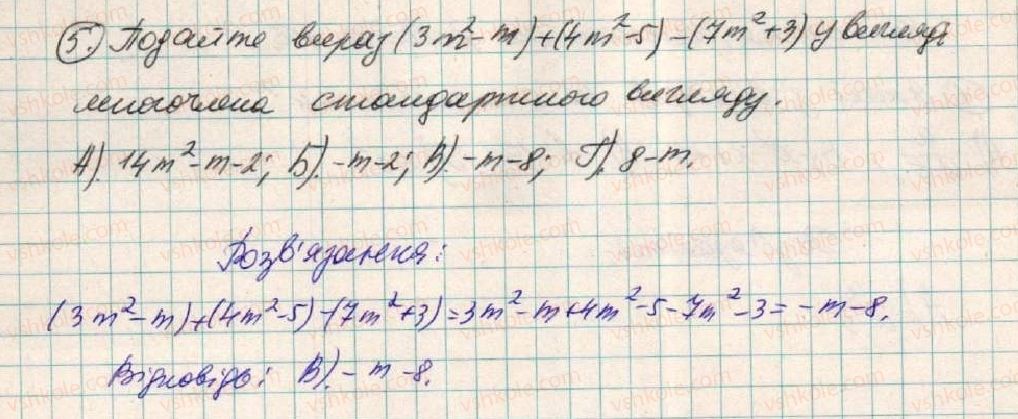 5). Подайте вираз (3m²-m)+(4m²-5)-(7m²+3) у вигляді
многочлена стандартного вигляду.
А). 14m²-m-2; Б). -m-2; В). -m-8; Г). 8-m.
Розв'язання:
(3m²-m)+(4m²-5)-(7m²+3)=3m²-m+4m²-5-7m²-3=-m-8.
Відповідь: В). -m-8.